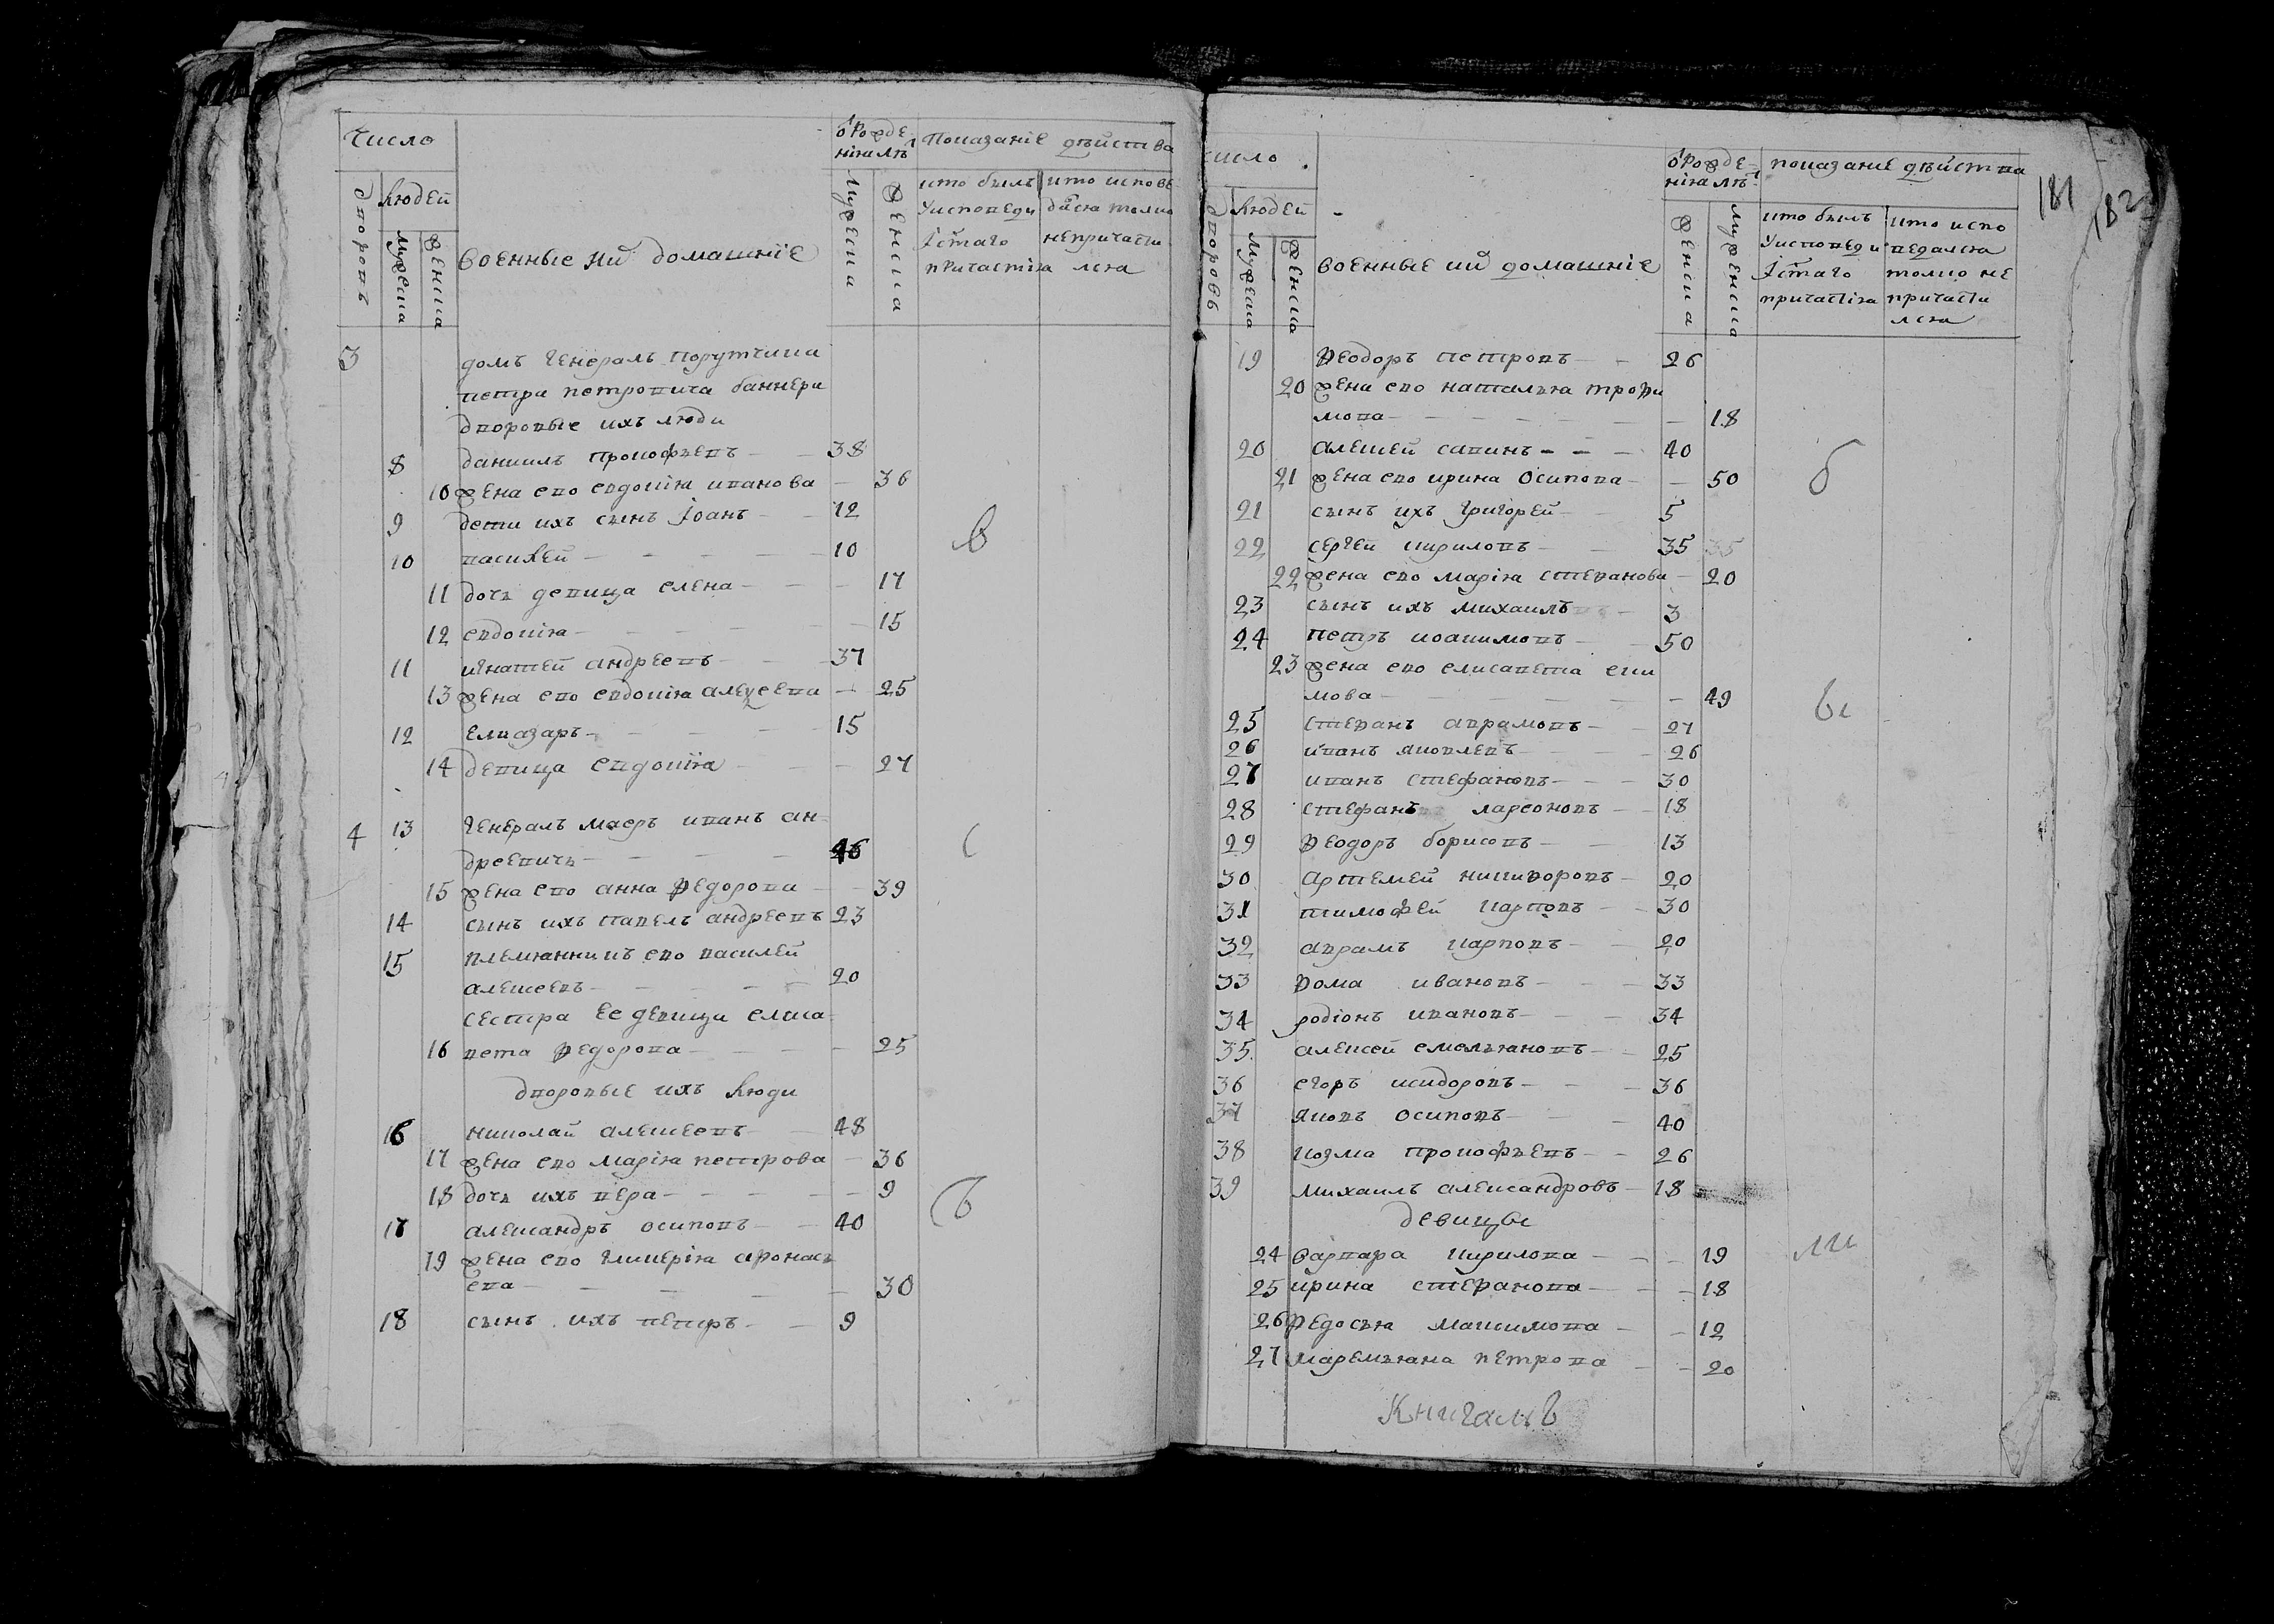 Число
Людей
дворовъ
мужеска
женска
военные ихъ домашніе
о рожде
ніи лѣт
мужеска
женска
Показаніе действа
кто былъ
у исповеди
і стаго
причастія
кто испове
дался токмо
не причасти
лся
3
домъ генералъ порутчика
петра петровича баннера
дворовые ихъ люди
8 даниилъ прокофьевъ — — 38
10 жена ево евдокія иванова — 36
9 дети ихъ сынъ Іоанъ — — 12
10 василей — — — — 10
11 дочь девица елена — — — 17
12 евдокія — — — — 15
11 игнатей андреевъ — — 37
13 жена ево евдокія алексеева — 25
12 елиазаръ — — — — 15
14 девица евдокія — — — 27
4 13 генералъ маеръ иванъ ан
дреевичь — — — — 46
15 жена ево анна федорова — — 39
14 сынъ ихъ павелъ андреевъ 23
15 племянникъ ево василей
алексеевъ — — — — 20
сестра ее девица елиса
16 вета федорова — — — — 25
дворовые ихъ люди
16 николай алексеевъ — — 48
17 жена ево марія петрова — 36
18 дочь ихъ вера — — — — 9
17 александръ осиповъ — — 40
19 жена ево гликерія афонась
ева — — — — — 30
18 сынъ ихъ петръ — — 9
в
с
Б
число
Людей
дворовъ
мужеска
женска
военные ихъ домашніе
о рожде
ніи лѣт
женска
мужеска
показаніе действа
кто былъ
у исповеди
і стаго
причастія
кто испо
ведался
токмо не
причасти
лся
181
182
19 феодоръ петровъ — — 26
20 жена ево наталья трофи
мова — — — — — 18
20 алексей савинъ — — — 40
21 жена ево ирина осипова — — 50
21 сынъ ихъ григорей — — 5
22 сергей кириловъ — — 35 35
22 жена ево марія стефанова — 20
23 сынъ ихъ михаилъ — 3
24 петръ иоакимовъ — — 50
23 жена ево елисавета еки
мова — — — — — 49
25 стефанъ аврамовъ — — 27
26 иванъ яковлевъ — — — 26
27 иванъ стефановъ — — — 30
28 стефанъ лареоновъ — — 18
29 феодоръ борисовъ — — 13
30 артемей никифоровъ — 20
31 тимофей карповъ — — 30
32 аврамъ карповъ — — 20
33 фома ивановъ — — — 33
34 родіонъ ивановъ — — — 34
35 алексей емельяновъ — — 25
36 егоръ исидоровъ — — — 36
37 яковъ осиповъ — — — 40
38 козма прокофьевъ — — 26
39 михаилъ александровъ — 18
девицы
24 варвара кирилова — — — 19
25 ирина стефанова — — — 18
26 федосья максимова — — 12
27 маремьяна петрова — — 20
б
вс